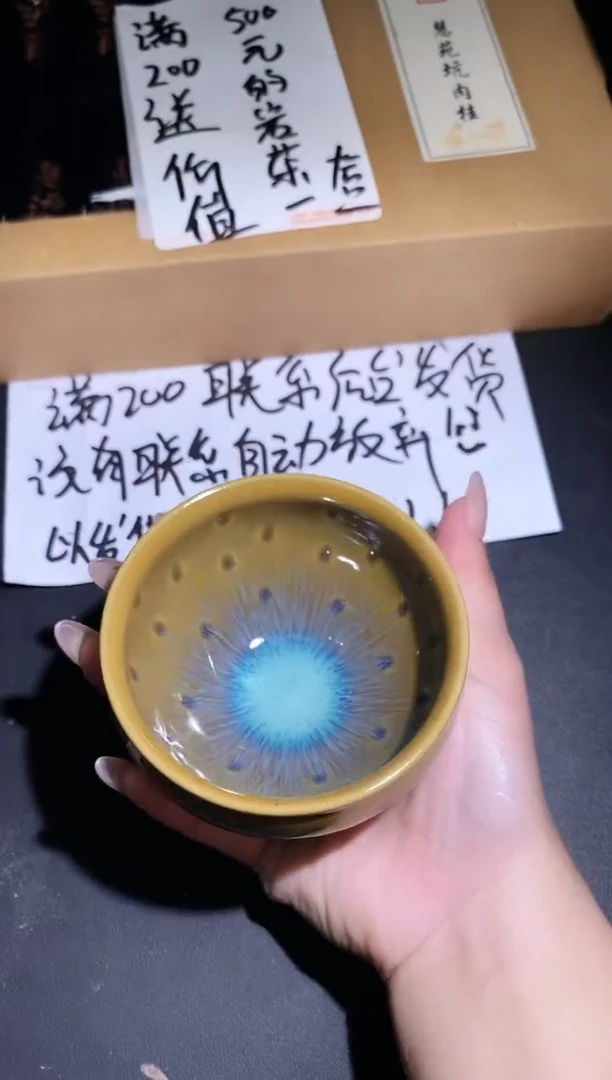 满200送价值
500元的岩茶一
慧苑坑肉桂
满200联系后台发货
没有联系自动放弃
以发